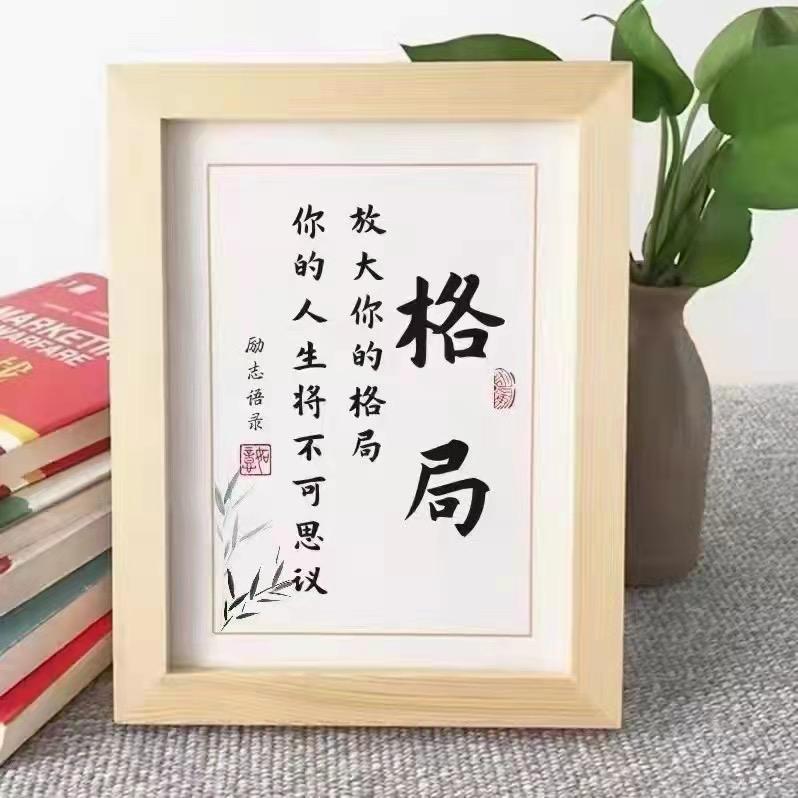 格局
放大你的格局
你的人生将不可思议
励志语录
MARKETING
WARFARE